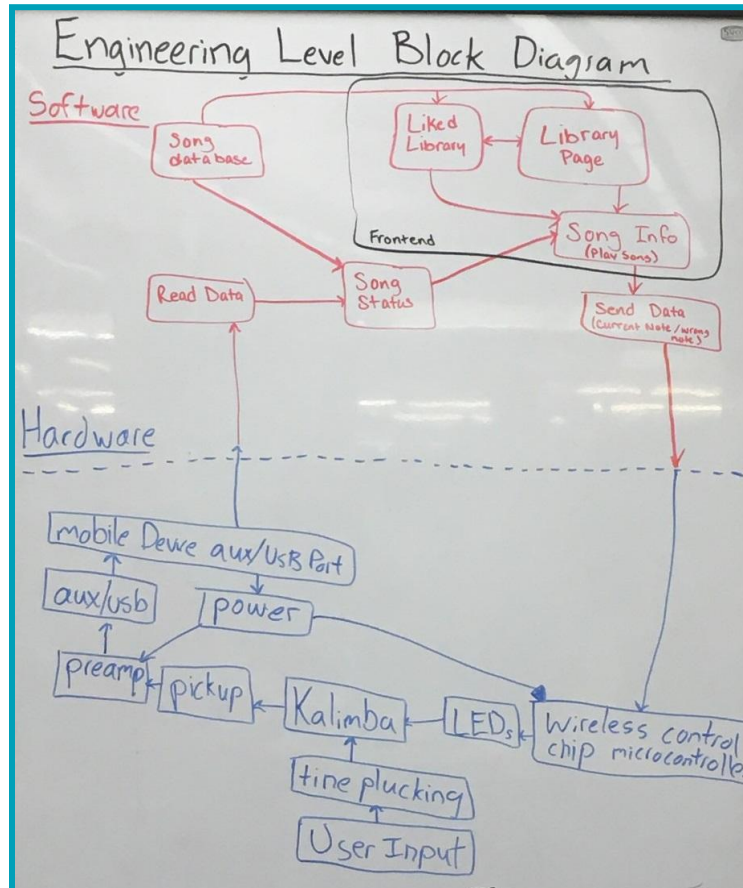 Engineering Level Block Diagram
Software
Song
database
Liked
Library
Library
Page
Frontend
Song Info
(Play Song)
Read Data
Song
Status
Send Data
(Current Note/wrong
note)
Hardware
mobile Devve aux/USB Port
aux/usb
power
preamp
pickup
Kalimba
LEDs
Wireless control
chip microcontrolle
tine plucking
User Input